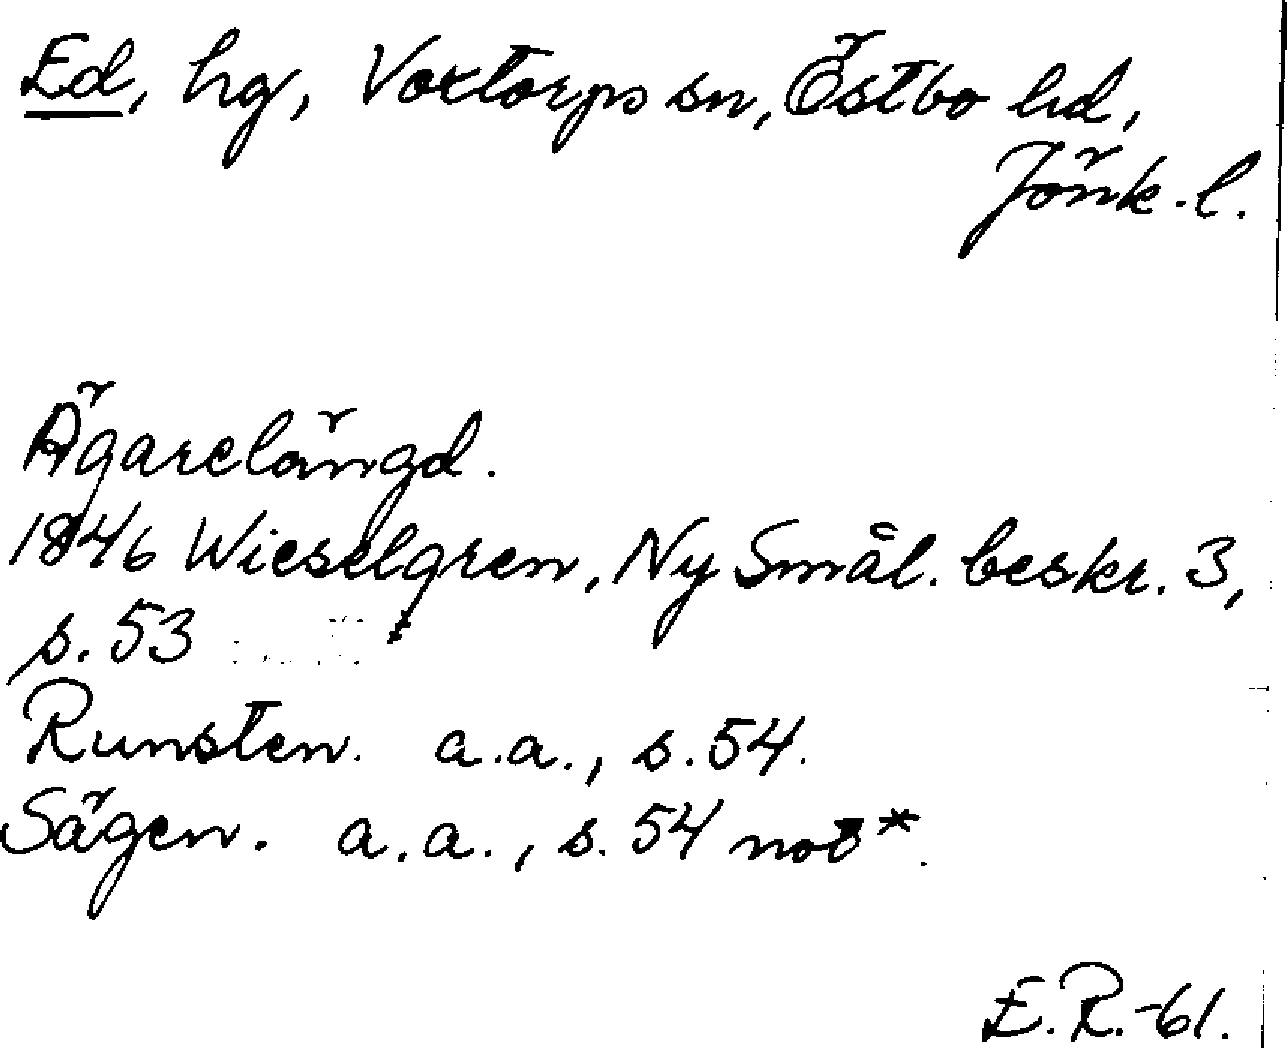 Ed, hg, Voxtorps sn, Östbo hd,
Jönk.l.
Ägarelängd.
1846 Wieselgren, Ny Smål. beskr. 3,
s. 53
Runsten. a.a., s. 54.
Sägen. a.a., s. 54 not*.
E.R.-61.